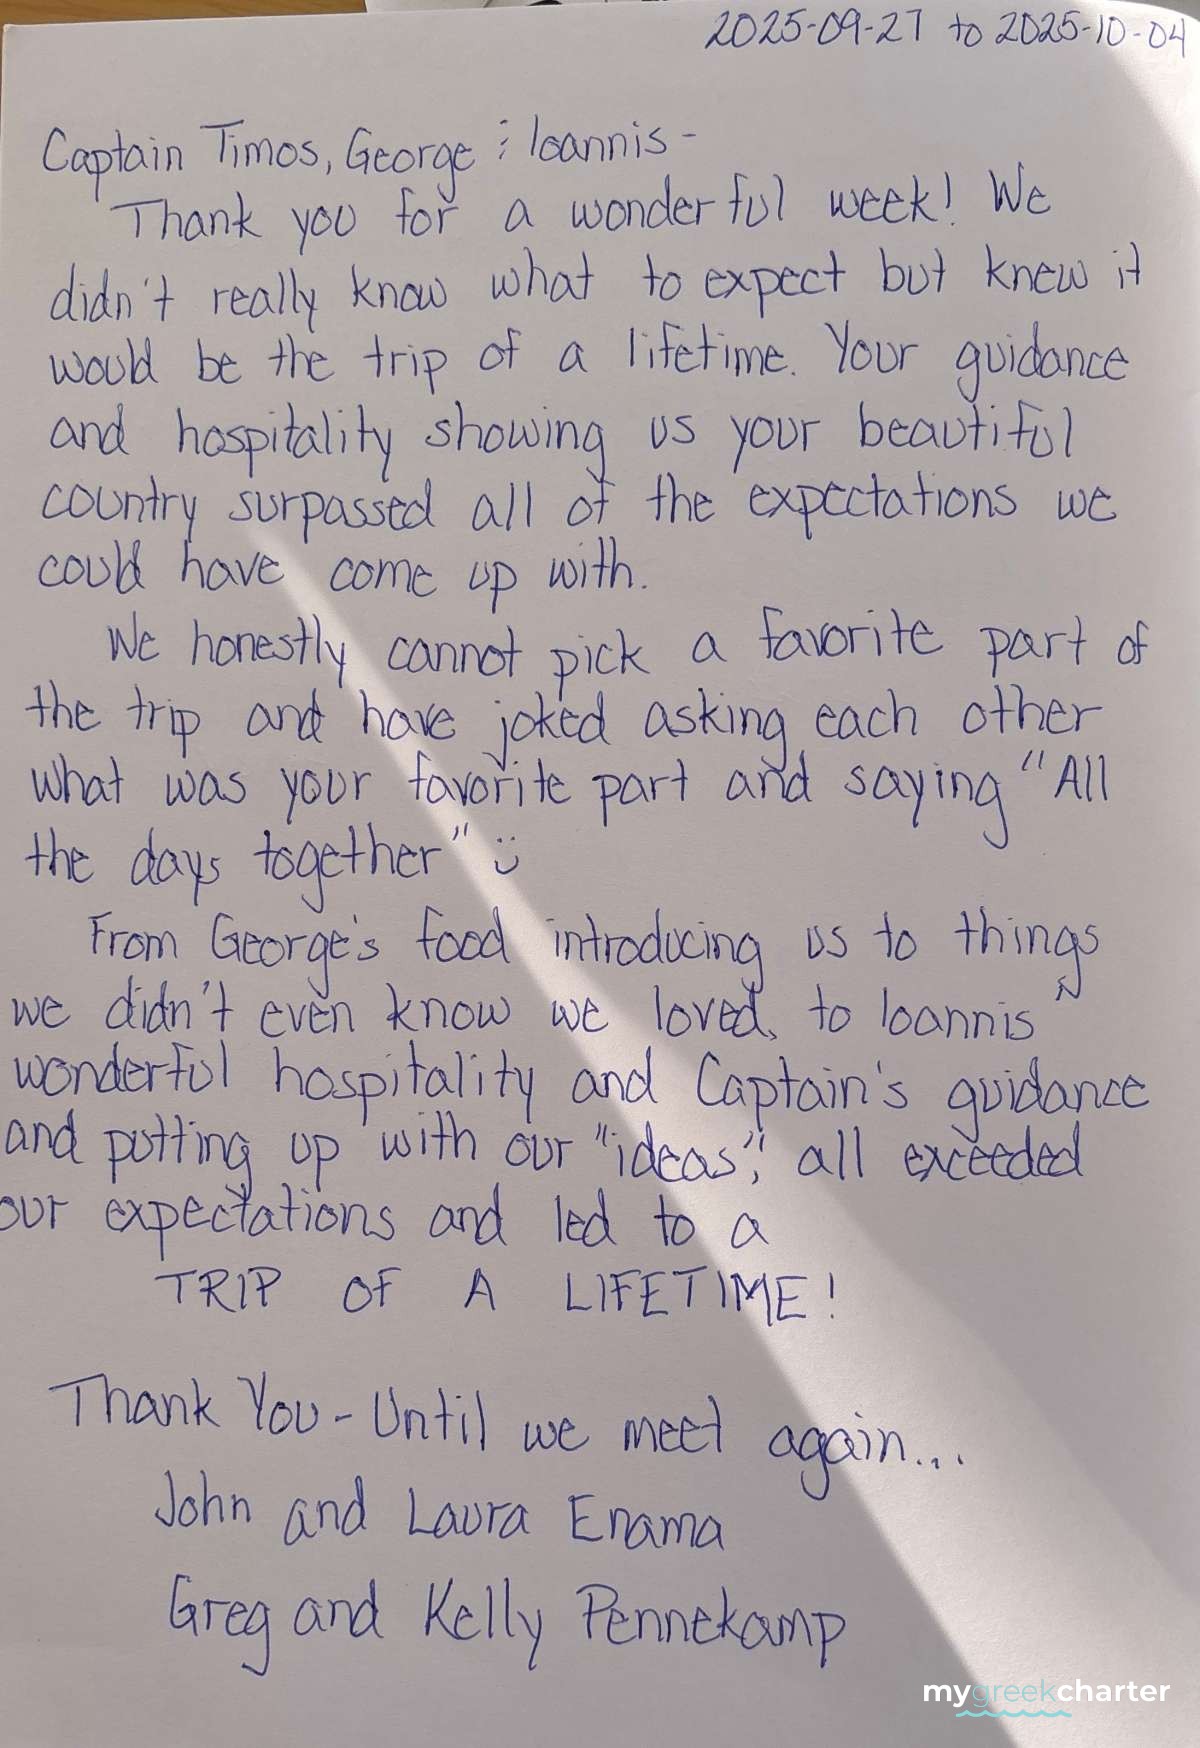 2025-09-27 to 2025-10-04
Captain Timos, George & Ioannis -
Thank you for a wonderful week! We
didn't really know what to expect but knew it
would be the trip of a lifetime. Your guidance
and hospitality showing us your beautiful
country surpassed all of the expectations we
could have come up with.
We honestly cannot pick a favorite part of
the trip and have joked asking each other
what was your favorite part and saying "All
the days together" :)
From George's food introducing us to things
we didn't even know we loved, to Ioannis
wonderful hospitality and Captain's guidance
and putting up with our "ideas", all exceeded
our expectations and led to a
TRIP OF A LIFETIME!
Thank You - Until we meet again...
John and Laura Enama
Greg and Kelly Pennekamp
mygreekcharter